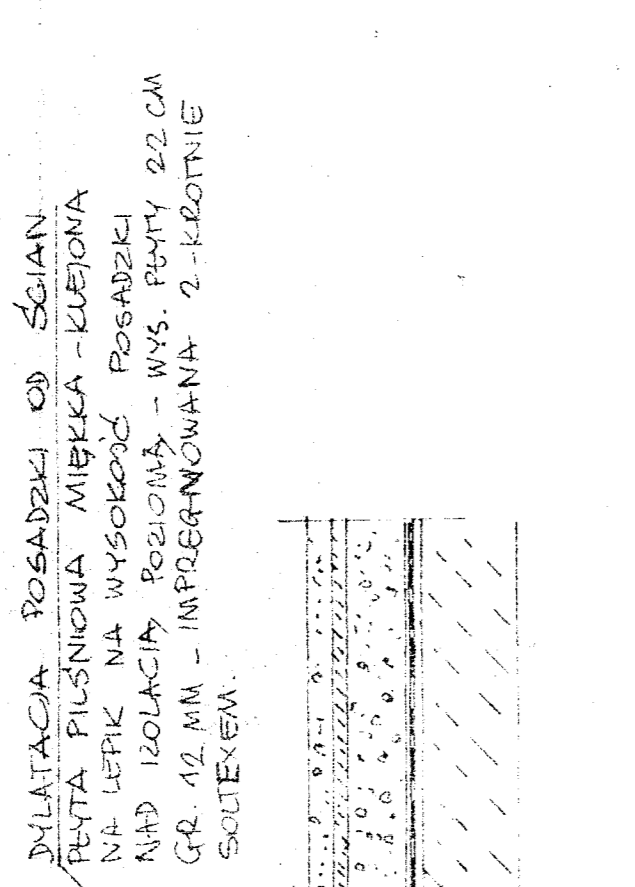 DYLATACJA POSADZKI OD ŚCIAN
PŁYTA PILŚNIOWA MIĘKKA - KLEJONA
NA LEPIK NA WYSOKOŚĆ POSADZKI
NAD IZOLACJĄ POZIOMĄ - WYS. PŁYTY 22 CM
GR. 12 MM - IMPREGNOWANA 2-KROTNIE
SOLTEXEM.